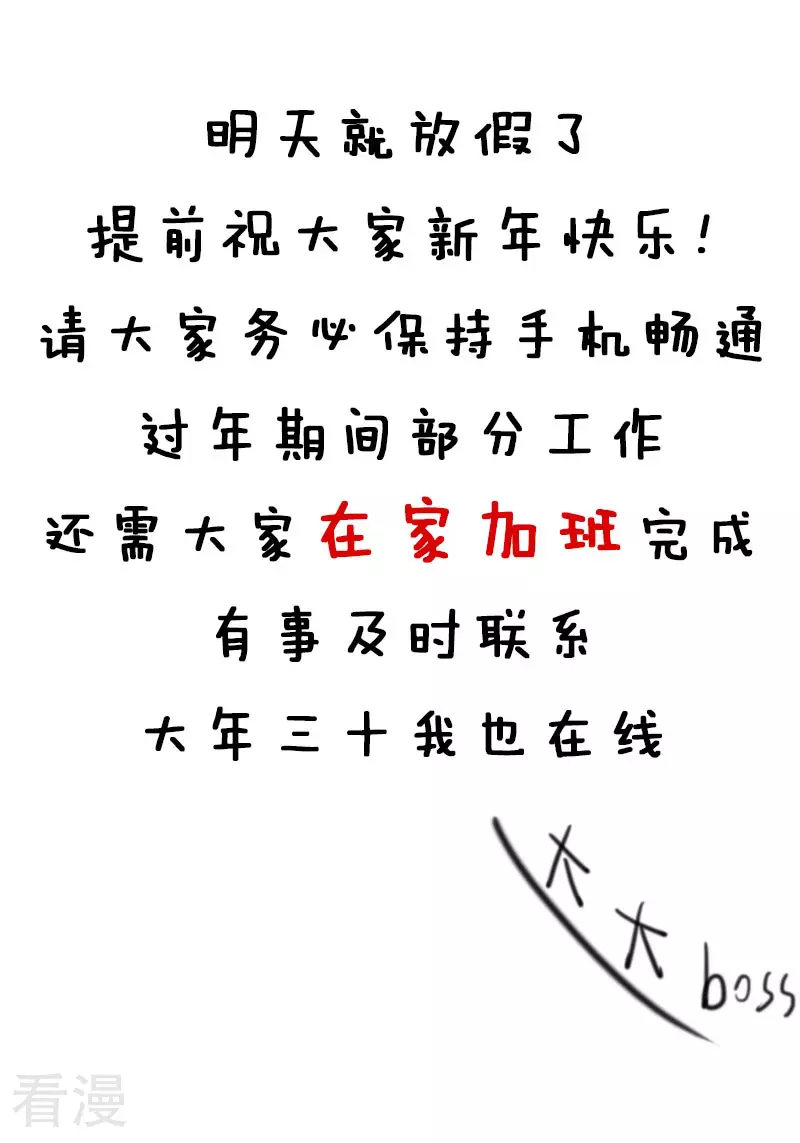 明天就放假了
提前祝大家新年快乐!
请大家务必保持手机畅通
过年期间部分工作
还需大家在家加班完成
有事及时联系
大年三十我也在线
大大boss
看漫